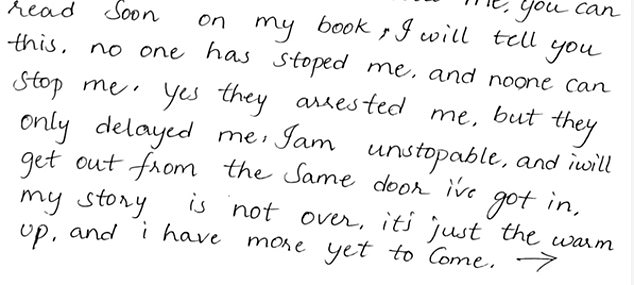 me, you can
read Soon on my book, I will tell you
this. no one has stoped me, and noone can
Stop me. yes they arrested me, but they
only delayed me, Iam unstopable, and iwill
get out from the Same door i've got in.
my story is not over, it's just the warm
up, and i have more yet to Come. →